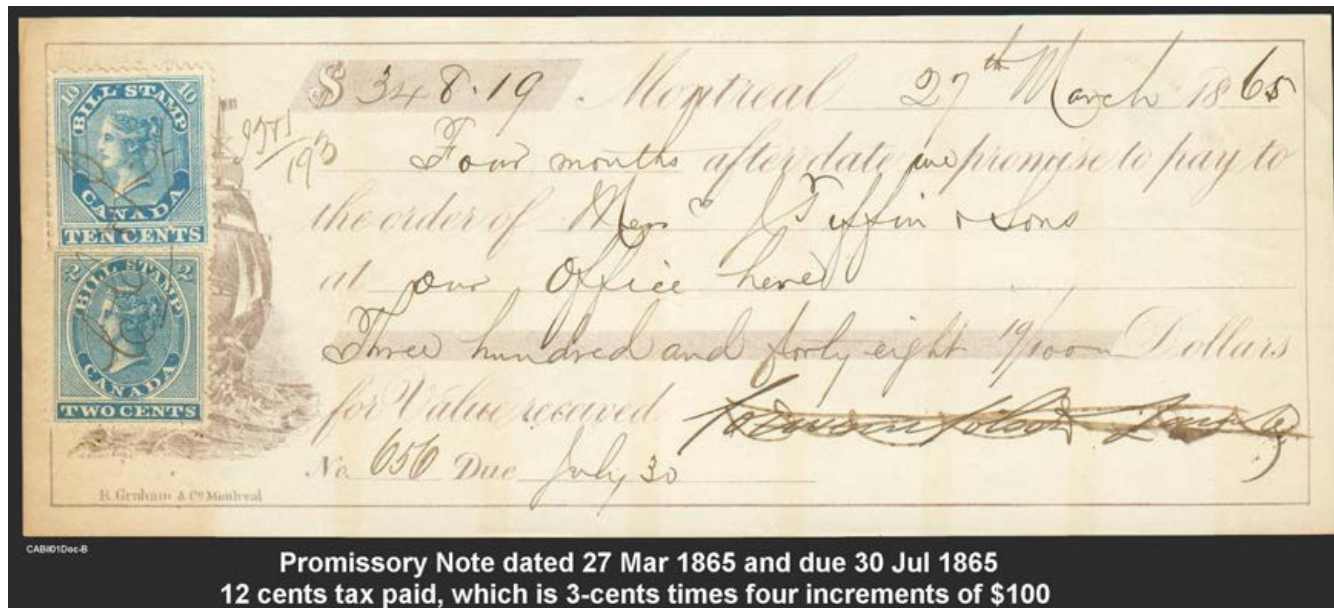 10 10
BILL STAMP
CANADA
TEN CENTS
2 2
BILL STAMP
CANADA
TWO CENTS
$ 348.19 Montreal 27th March 1865
Four months after date we promise to pay to
the order of Messrs J Tiffin & Sons
at our Office here
Three hundred and forty eight 19/100 Dollars
for Value received
No. 656 Due July 30
R. Graham & Co Montreal
CABI01Doc-B
Promissory Note dated 27 Mar 1865 and due 30 Jul 1865
12 cents tax paid, which is 3-cents times four increments of $100